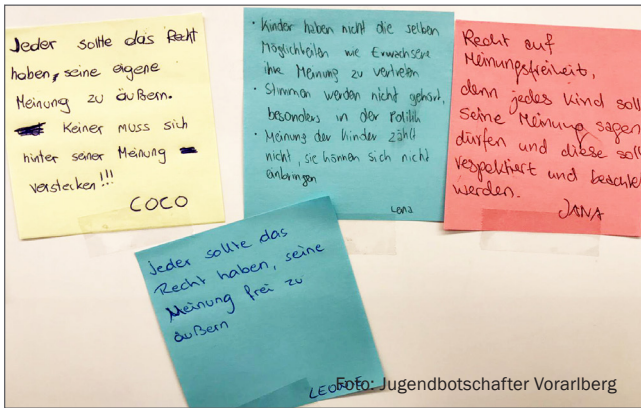 Jeder sollte das Recht
haben, seine eigene
Meinung zu äußern.
Keiner muss sich
hinter seiner Meinung
verstecken!!!
COCO
• Kinder haben nicht die selben
Möglichkeiten wie Erwachsene
ihre Meinung zu vertreten
• Stimmen werden nicht gehört,
besonders in der Politik
• Meinung der Kinder zählt
nicht, sie können sich nicht
einbringen
Lena
Recht auf
Meinungsfreiheit,
denn jedes Kind soll
seine Meinung sagen
dürfen und diese soll
respektiert und
werden.
JANA
Jeder sollte das
Recht haben, seine
Meinung frei zu
äußern
Foto: Jugendbotschafter Vorarlberg